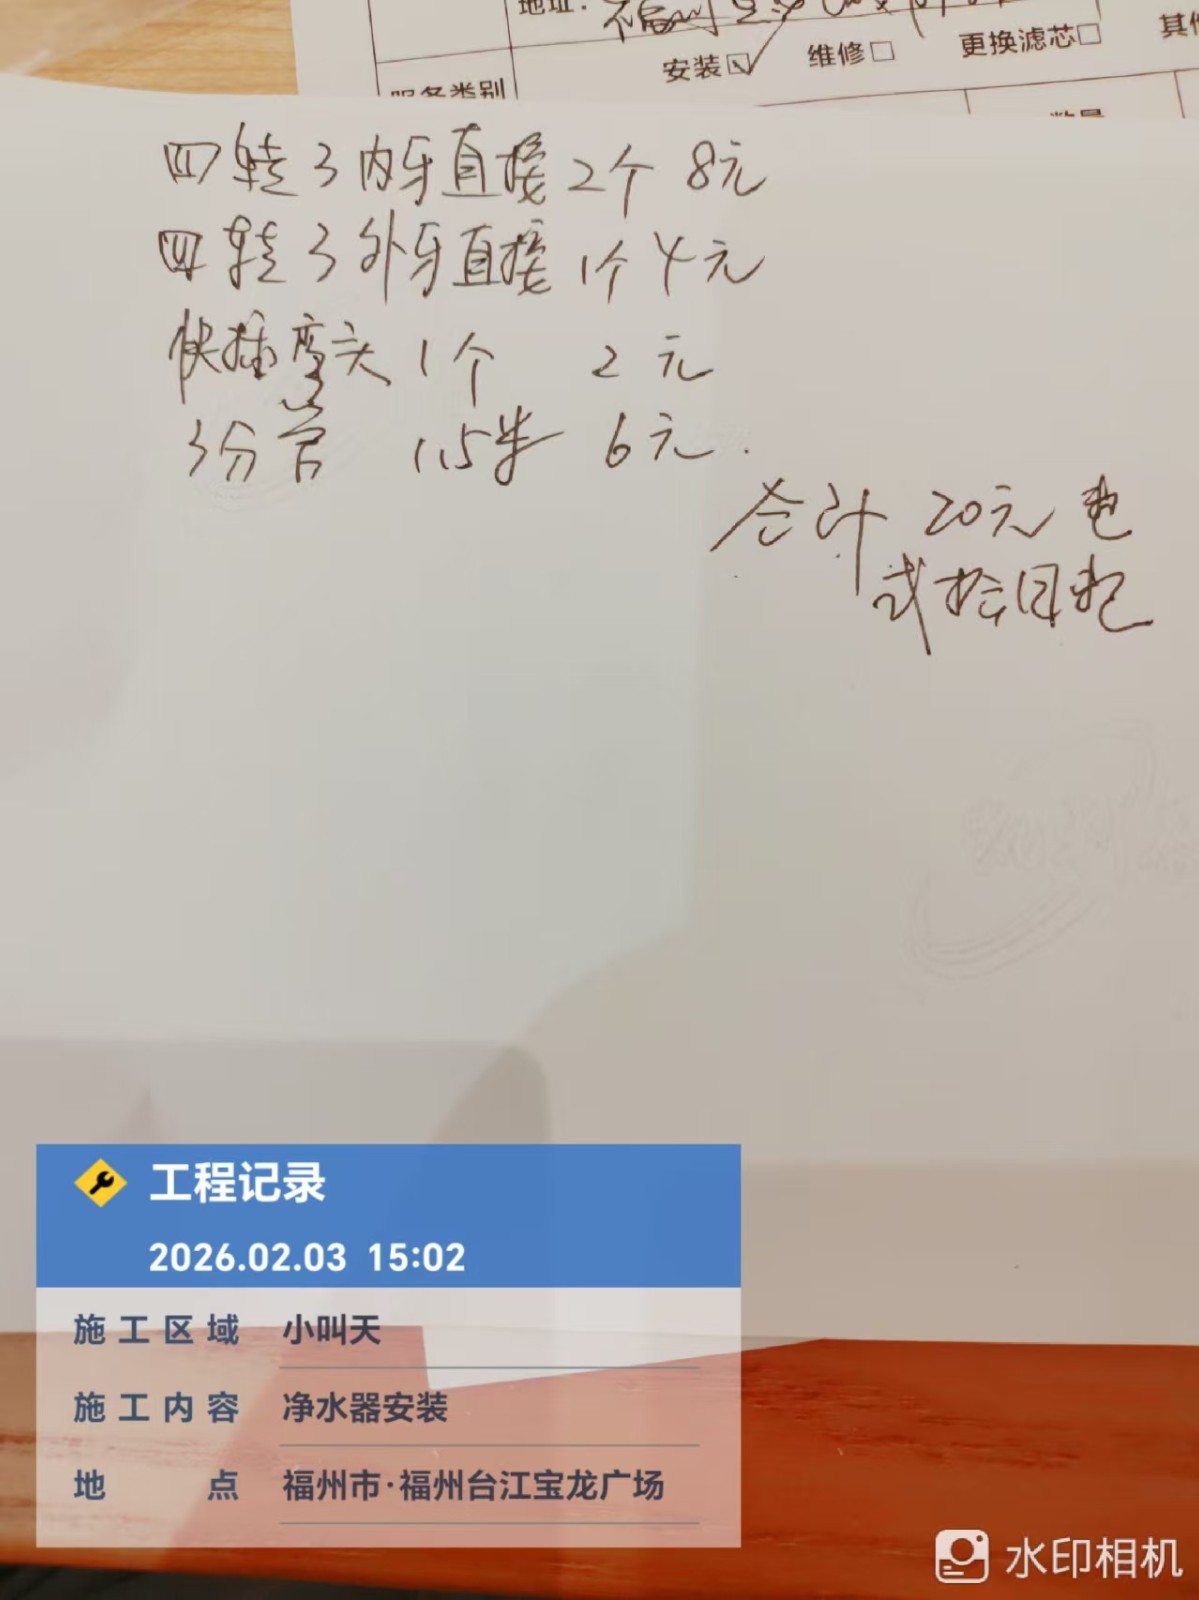 地址：
安装☑ 维修□ 更换滤芯□ 其他
服务类别
数量
四转3内牙直接2个 8元
四转3外牙直接1个4元
快插弯头1个 2元
3分管 1.5米 6元.
合计 20元
贰拾
工程记录
2026.02.03 15:02
施工区域 小叫天
施工内容 净水器安装
地点 福州市·福州台江宝龙广场
水印相机